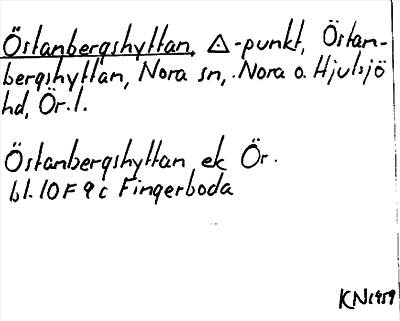 Östanbergshyttan, △-punkt, Östan-
bergshyttan, Nora sn, Nora o. Hjulsjö
hd, Ör. l.
Östanbergshyttan ek Ör.
bl. 10 F 9 c Fingerboda
KN 1959